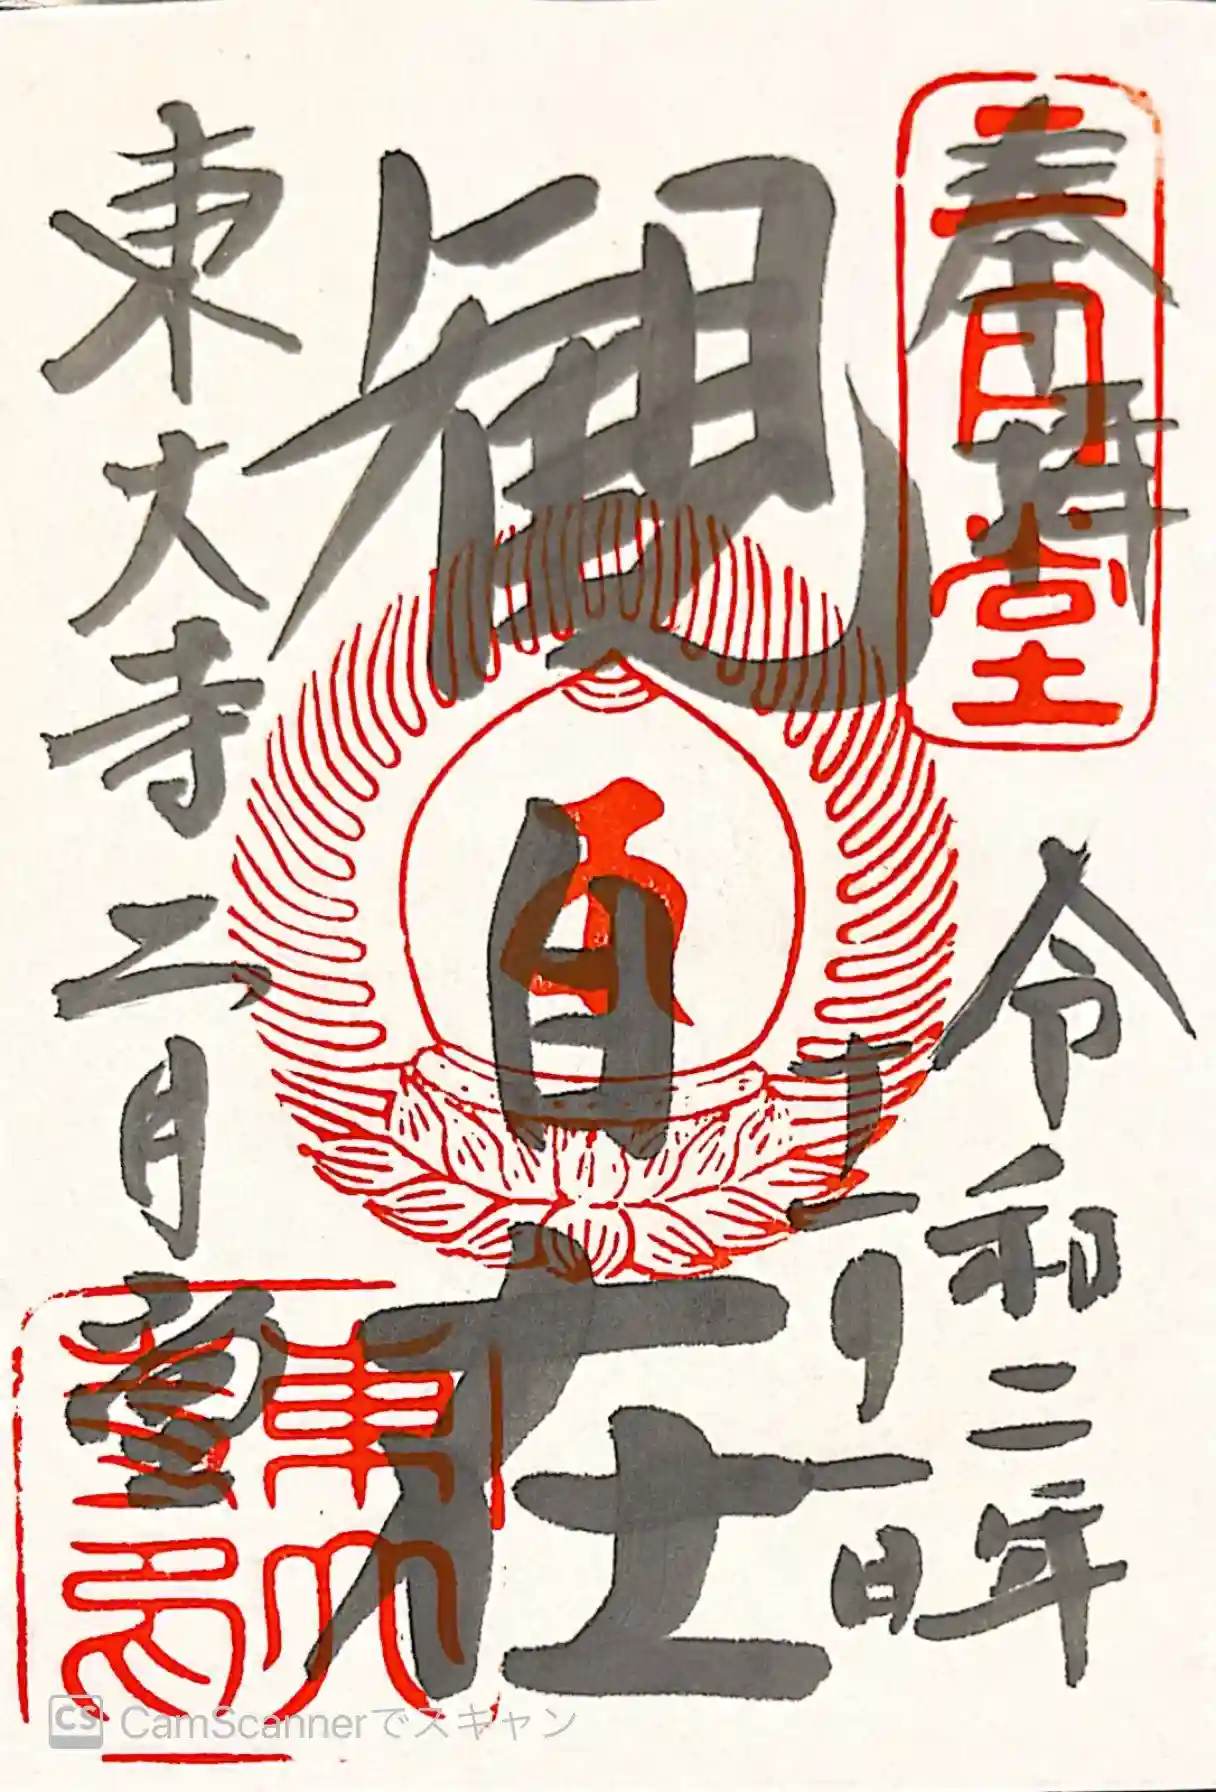 奉拝
二月堂
令和二年
十一月一日
観自在
東大寺二月堂
CamScannerでスキャン